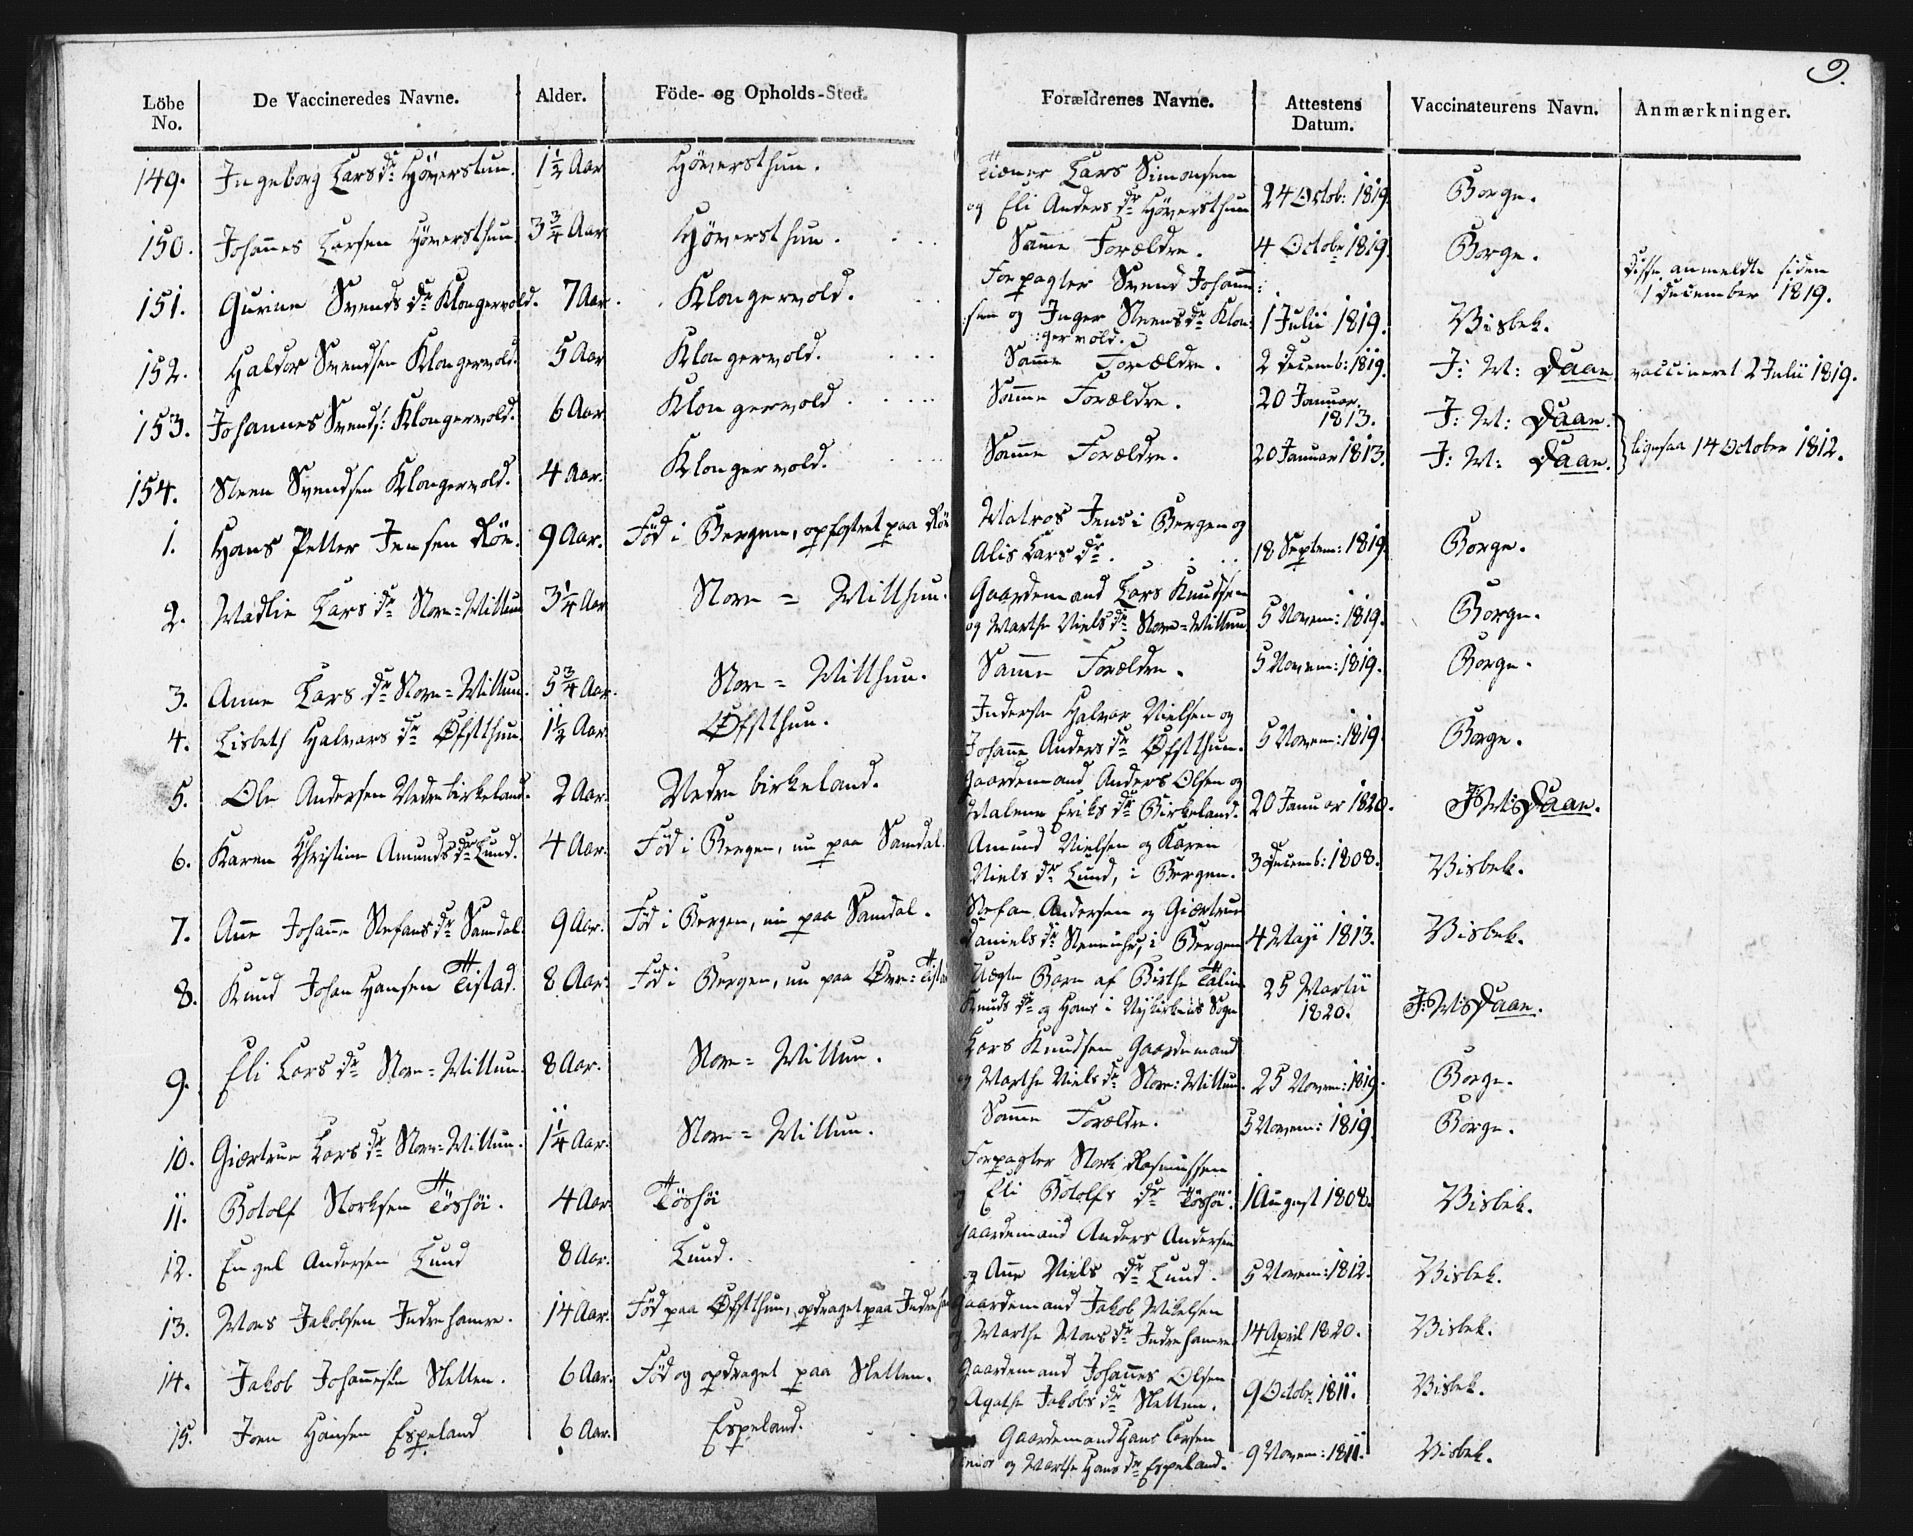 9.
Löbe No. De Vaccineredes Navne. Alder. Föde- og Opholds-Sted. Forældrenes Navne. Attestens Datum. Vaccinateurens Navn. Anmærkninger.
149. Ingeborg Larsdr Höverstun. 1½ Aar Höversthun. Tiæner Lars Simonsen
og Eli Andersdr Höversthun 24 Octob: 1819. Borge.
150. Johannes Larsen Höversthun 3¾ Aar Höversthun. Samme Forældre. 4 Octobr 1819. Borge.
151. Gurine Svendsdr Klongervold. 7 Aar. Klongervold. Forpagter Svend Johann:
:sen og Inger Steensdr Klon: 1 Julii 1819. Visbek. Disse anmeldte siden
:gervold. 1 December 1819.
152. Haldor Svendsen Klongervold. 5 Aar Klongervold. Samme Forældre. 2 Decemb: 1819. J: M: Daae. vaccineret 2 Julii 1819.
153. Johannes Svends: Klongervold. 6 Aar Klongervold. Samme Forældre. 20 Januar. 1813. J: M: Daae.
154. Steen Svendsen Klongervold. 4 Aar. Klongervold. Samme Forældre. 20 Januar 1813. J: M: Daae. ligesaa 14 October 1812.
1. Hans Petter Jensen Röe. 9 Aar. Föd i Bergen, opfostret paa Röe Matros Jens i Bergen og
Alis Larsdr. 18 Septem: 1819. Borge.
2. Madlie Larsdr Store-Mittun 3¼ Aar Store-Mitthun. Gaardemand Lars Knudsen
og Marthe Nielsdr Store-Mittun 5 Novem: 1819. Borge.
3. Anne Larsdr Store-Mittun. 5¾ Aar. Store-Mitthun. Samme Forældre. 5 Novem: 1819. Borge.
4. Lisbeth Halvorsdr Øfstthun. 1½ Aar. Øfstthun. Inderste Halvor Nielsen og
Johanne Andersdr Øfstthun. 5 Novem: 1819. Borge.
5. Ole Andersen Nedrebirkeland. 2 Aar. Nedre birkeland. Gaardemand Anders Olsen og
Malene Eriksdr Birkeland. 20 Januar 1820. J: M: Daae.
6. Karen Christine Amundsdr Lund. 4 Aar. Föd i Bergen, nu paa Samdal. Amund Nielsen og Karen
Nielsdr Lund, i Bergen. 3 Decemb: 1808. Visbek.
7. Ane Johanne Stefansdr Samdal. 9 Aar. Föd i Bergen, nu paa Samdal. Stefan Andersen og Giærtrue
Danielsdr i Bergen 4 Maji 1813. Visbek.
8. Knud Johan Hansen Tistad. 8 Aar. Föd i Bergen, nu paa Øvre: Tistad Uægte Barn af Birthe
Knudsdr og Hans i Nykirkens Sogn 25 Martii 1820. J: M: Daae.
9. Eli Larsdr Store-Mittun. 8 Aar. Store-Mittun. Lars Knudsen Gaardemand
og Marthe Nielsdr Store: Mittun. 25 Novem: 1819. Borge.
10. Giærtrue Larsdr Store-Mittun. 1¼ Aar. Store-Mittun. Samme Forældre. 5 Novem: 1819. Borge.
11. Botolf Storksen Töshöi. 4 Aar Töshöi Forpagter Stork Rasmussen
og Eli Botolfsdr Töshöi. 1 August 1808. Visbek.
12. Engel Andersen Lund 8 Aar. Lund. Gaardemand Anders Andersen
og Ane Nielsdr Lund. 5 Novem: 1812. Visbek.
13. Mons Jakobsen Indrehamre. 14 Aar. Föd paa Øfstthun, opdraget paa Indreha Gaardemand Jakob Mikelsen
og Marthe Monsdr Indrehamre 14 April 1820. Visbek.
14. Jakob Johannesen Sletten. 6 Aar. Föd og opdraget paa Sletten. Gaardemand Johannes Olsen
Agathe Jakobsdr Sletten. 9 Octobr 1811. Visbek.
15. Joen Hansen Espeland 6 Aar. Espeland. Gaardemand Hans Larsen
senior og Marthe Hansdr Espeland. 9 Novem: 1811. Visbek.